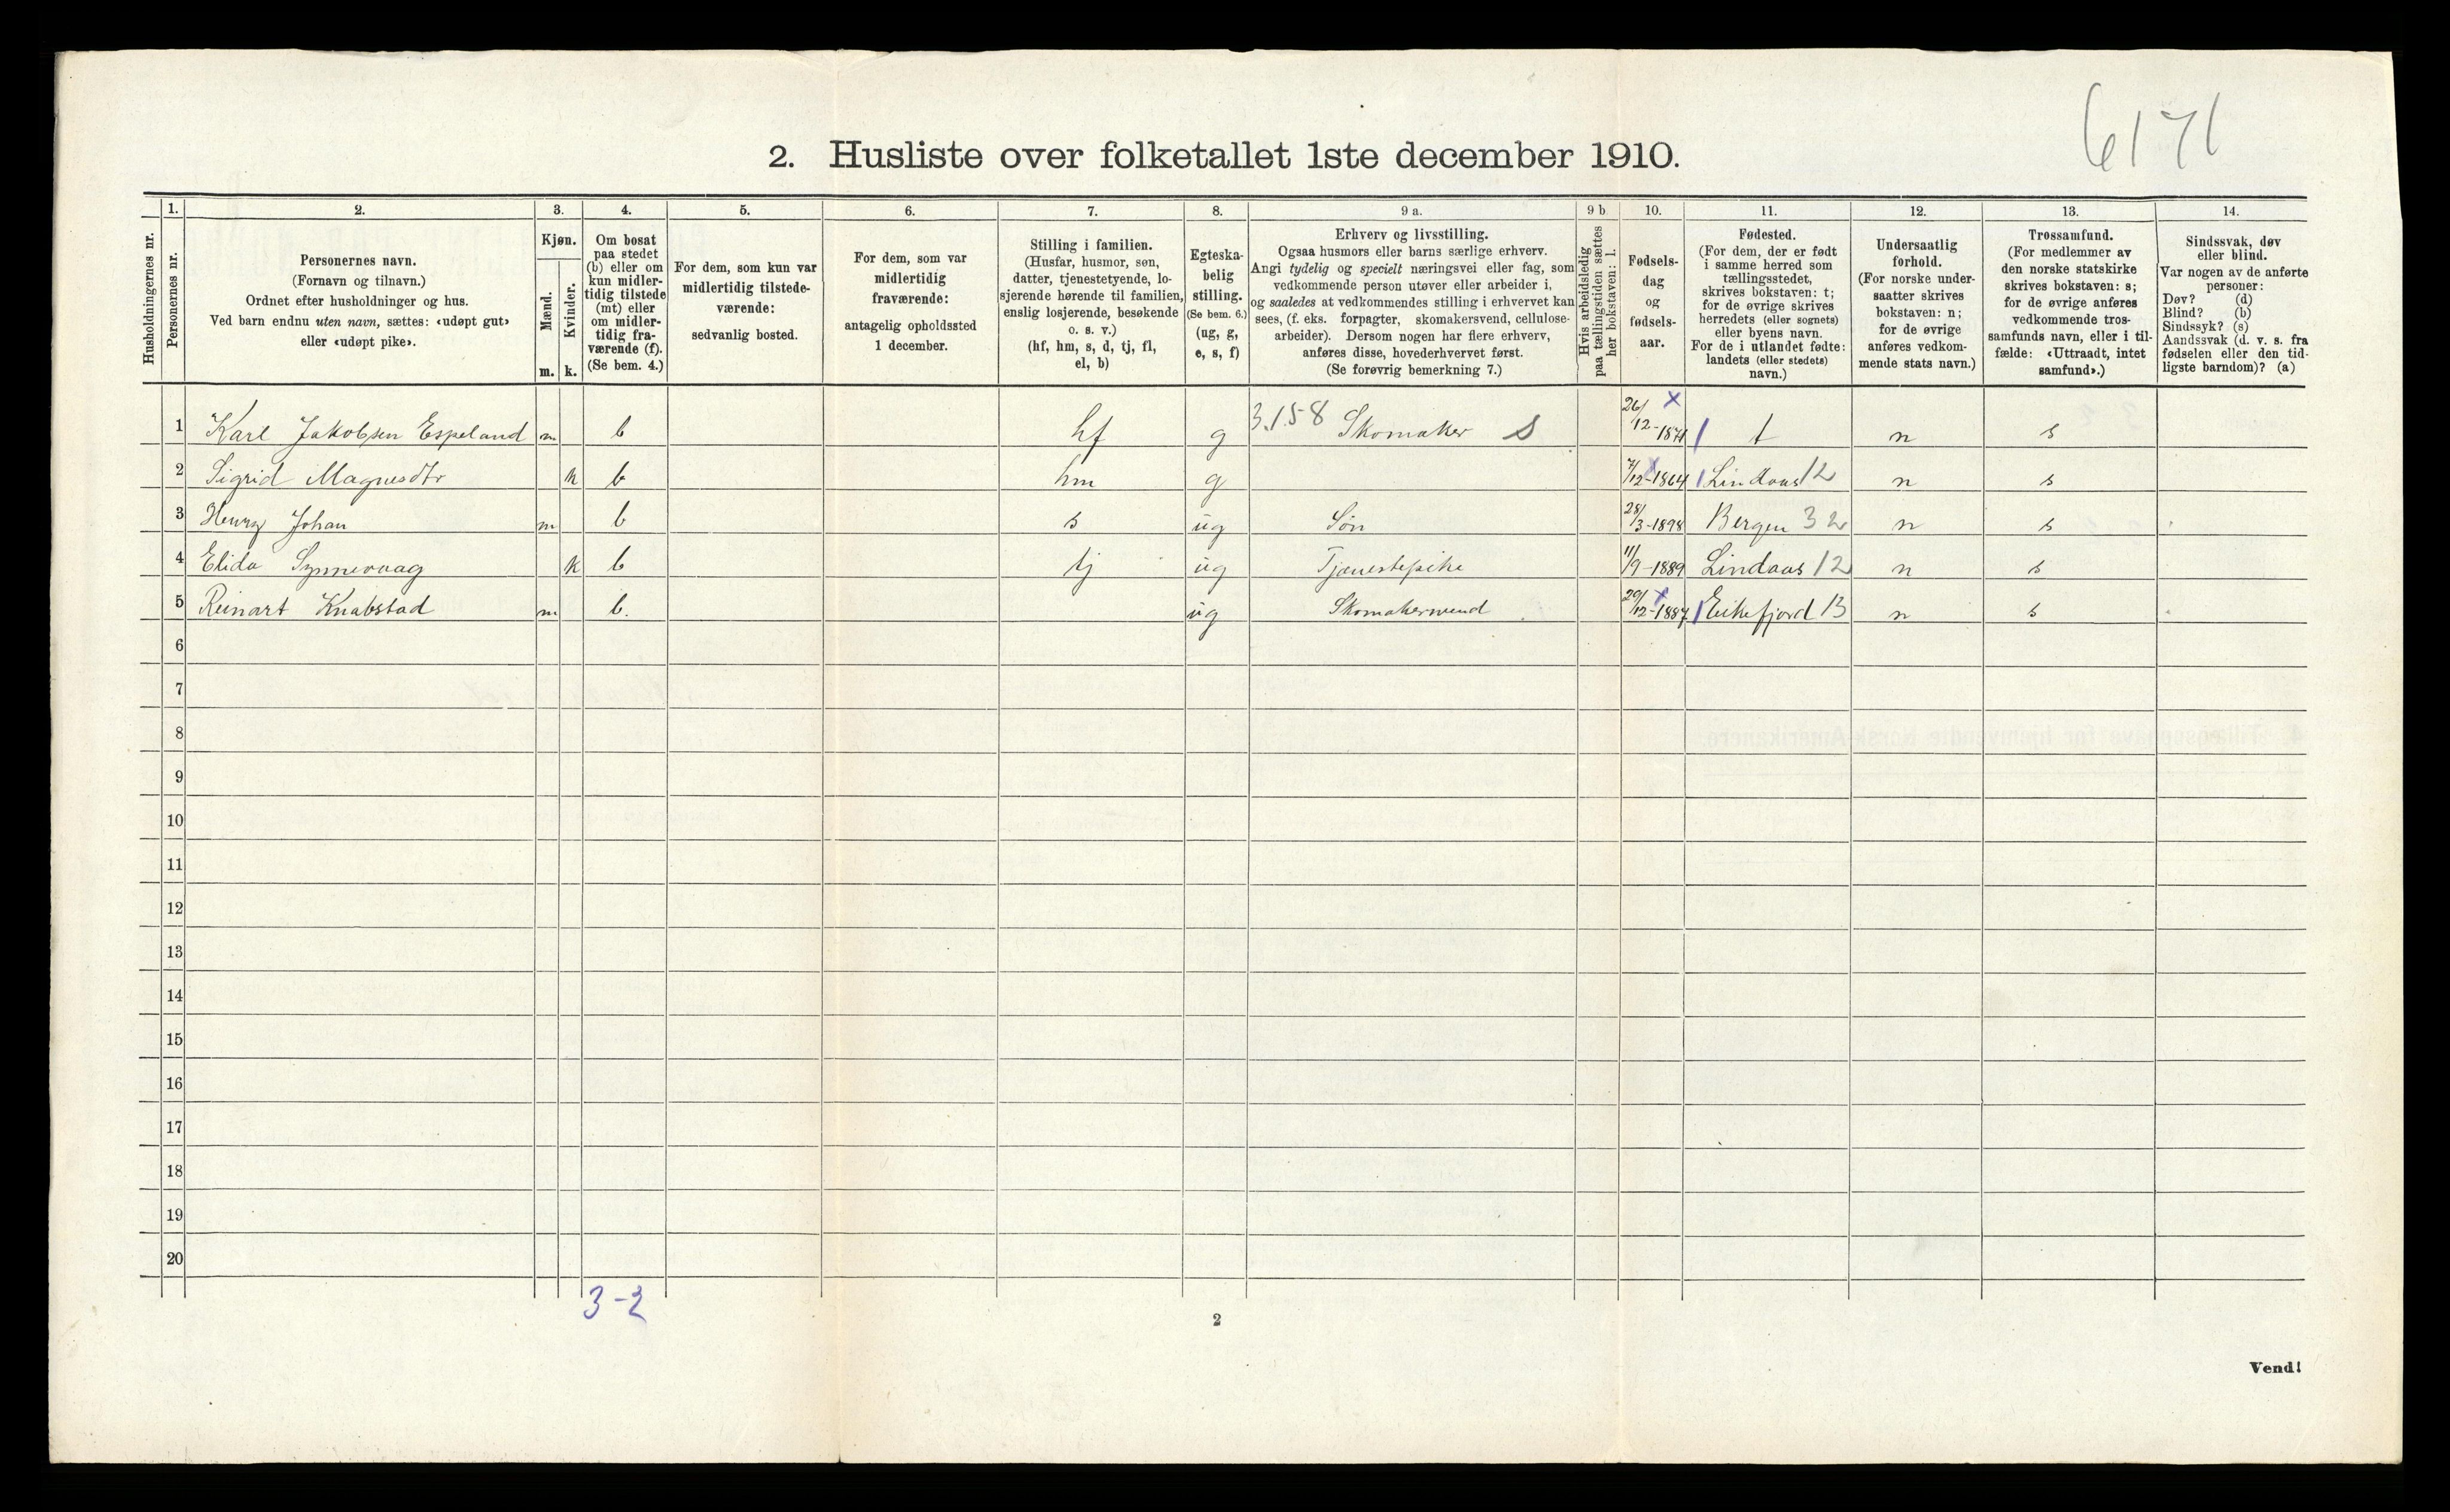 6171
2. Husliste over folketallet 1ste december 1910.
Husholdningernes nr.
1.
Personernes nr.
2.
Personernes navn.
(Fornavn og tilnavn.)
Ordnet efter husholdninger og hus.
Ved barn endnu uten navn, sættes: «udøpt gut»
eller «udøpt pike».
3.
Kjøn.
Mænd.
Kvinder.
m. k.
4.
Om bosat
paa stedet
(b) eller om
kun midler-
tidig tilstede
(mt) eller
om midler-
tidig fra-
værende (f).
(Se bem. 4.)
5.
For dem, som kun var
midlertidig tilstede-
værende:
sedvanlig bosted.
6.
For dem, som var
midlertidig
fraværende:
antagelig opholdssted
1 december.
7.
Stilling i familien.
(Husfar, husmor, søn,
datter, tjenestetyende, lo-
sjerende hørende til familien,
enslig losjerende, besøkende
o. s. v.)
(hf, hm, s, d, tj, fl,
el, b)
8.
Egteska-
belig
stilling.
(Se bem. 6.)
(ug, g,
e, s, f)
9 a.
Erhverv og livsstilling.
Ogsaa husmors eller barns særlige erhverv.
Angi tydelig og specielt næringsvei eller fag, som
vedkommende person utøver eller arbeider i,
og saaledes at vedkommendes stilling i erhvervet kan
sees, (f. eks. forpagter, skomakersvend, cellulose-
arbeider). Dersom nogen har flere erhverv,
anføres disse, hovederhvervet først.
(Se forøvrig bemerkning 7.)
9 b
Hvis arbeidsledig
paa tællingstiden sættes
her bokstaven: l.
10.
Fødsels-
dag
og
fødsels-
aar.
11.
Fødested.
(For dem, der er født
i samme herred som
tællingsstedet,
skrives bokstaven: t;
for de øvrige skrives
herredets (eller sognets)
eller byens navn.
For de i utlandet fødte:
landets (eller stedets)
navn.)
12.
Undersaatlig
forhold.
(For norske under-
saatter skrives
bokstaven: n;
for de øvrige
anføres vedkom-
mende stats navn.)
13.
Trossamfund.
(For medlemmer av
den norske statskirke
skrives bokstaven: s;
for de øvrige anføres
vedkommende tros-
samfunds navn, eller i til-
fælde: «Uttraadt, intet
samfund».)
14.
Sindssvak, døv
eller blind.
Var nogen av de anførte
personer:
Døv? (d)
Blind? (b)
Sindssyk? (s)
Aandssvak (d. v. s. fra
fødselen eller den tid-
ligste barndom)? (a)
1 Karl Jakobsen Espeland m b hf g 3.158 Skomaker S 26/12-1871 t n s
2 Sigrid Magnesdtr k b hm g 7/12-1864 Lindaas 12 n s
3 Henry Johan m b s ug Søn 28/3-1898 Bergen 32 n s
4 Elida Synnevaag k b tj ug Tjenestepike 11/9-1889 Lindaas 12 n s
5 Reinart Knabstad m b. ug Skomakersvend 29/12-1887 Eikefjord 13 n s
6
7
8
9
10
11
12
13
14
15
16
17
18
19
20
3-2
2
Vend!